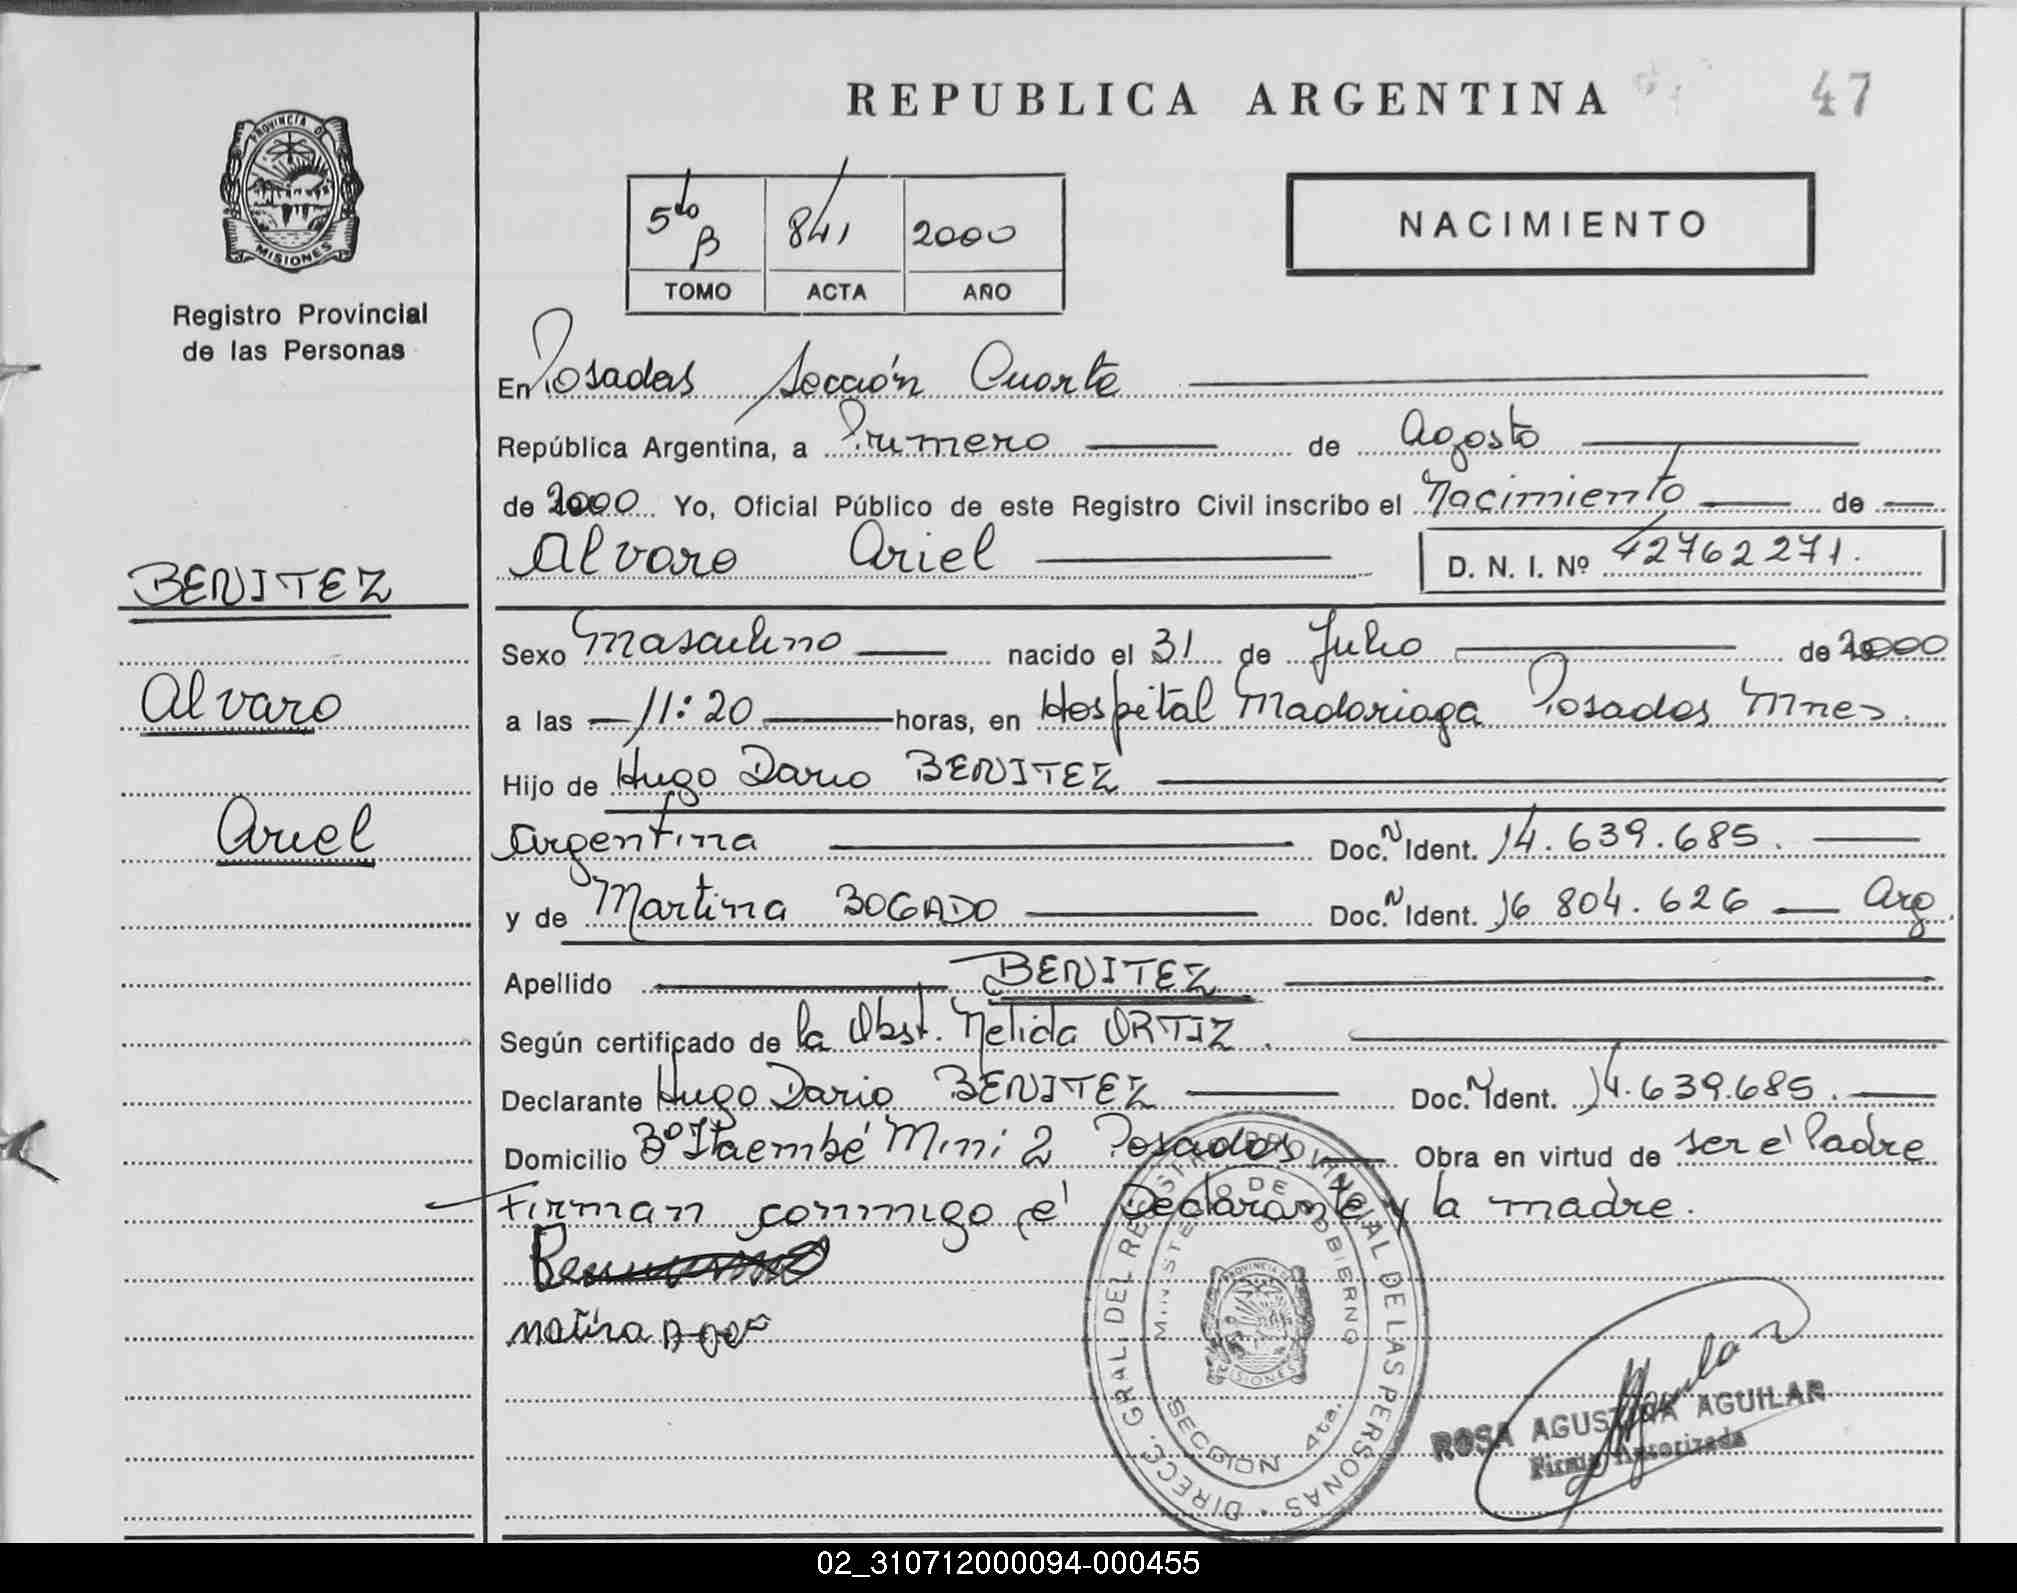 REPUBLICA ARGENTINA 47
PROVINCIA DE
MISIONES
Registro Provincial
de las Personas
5to B 841 2000
TOMO ACTA AÑO
NACIMIENTO
En Posadas Sección Cuarta
República Argentina, a Primero de Agosto
de 2000 Yo, Oficial Público de este Registro Civil inscribo el Nacimiento de
Alvaro Ariel D. N. I. Nº 42762271.
BENITEZ
Alvaro
Ariel
Sexo Masculino nacido el 31 de Julio de 2000
a las 11:20 horas, en Hospital Madariaga Posadas Mnes.
Hijo de Hugo Dario BENITEZ
Argentina Doc. N Ident. 14.639.685.
y de Martina BOGADO Doc. N Ident. 16 804.626 Arg.
Apellido BENITEZ
Según certificado de la Obst. Nelida ORTIZ.
Declarante Hugo Dario BENITEZ Doc. N Ident. 14.639.685.
Domicilio Bº Itaembé Mini 2 Posadas Obra en virtud de ser el Padre
Firman conmigo el Declarante y la madre.
DIRECC. GRAL. DEL REGISTRO PROVINCIAL DE LAS PERSONAS
MINISTERIO DE GOBIERNO
SECCION 4ta.
PROVINCIA DE
MISIONES
Aguilar
ROSA AGUSTINA AGUILAR
Firma Autorizada
02_310712000094-000455